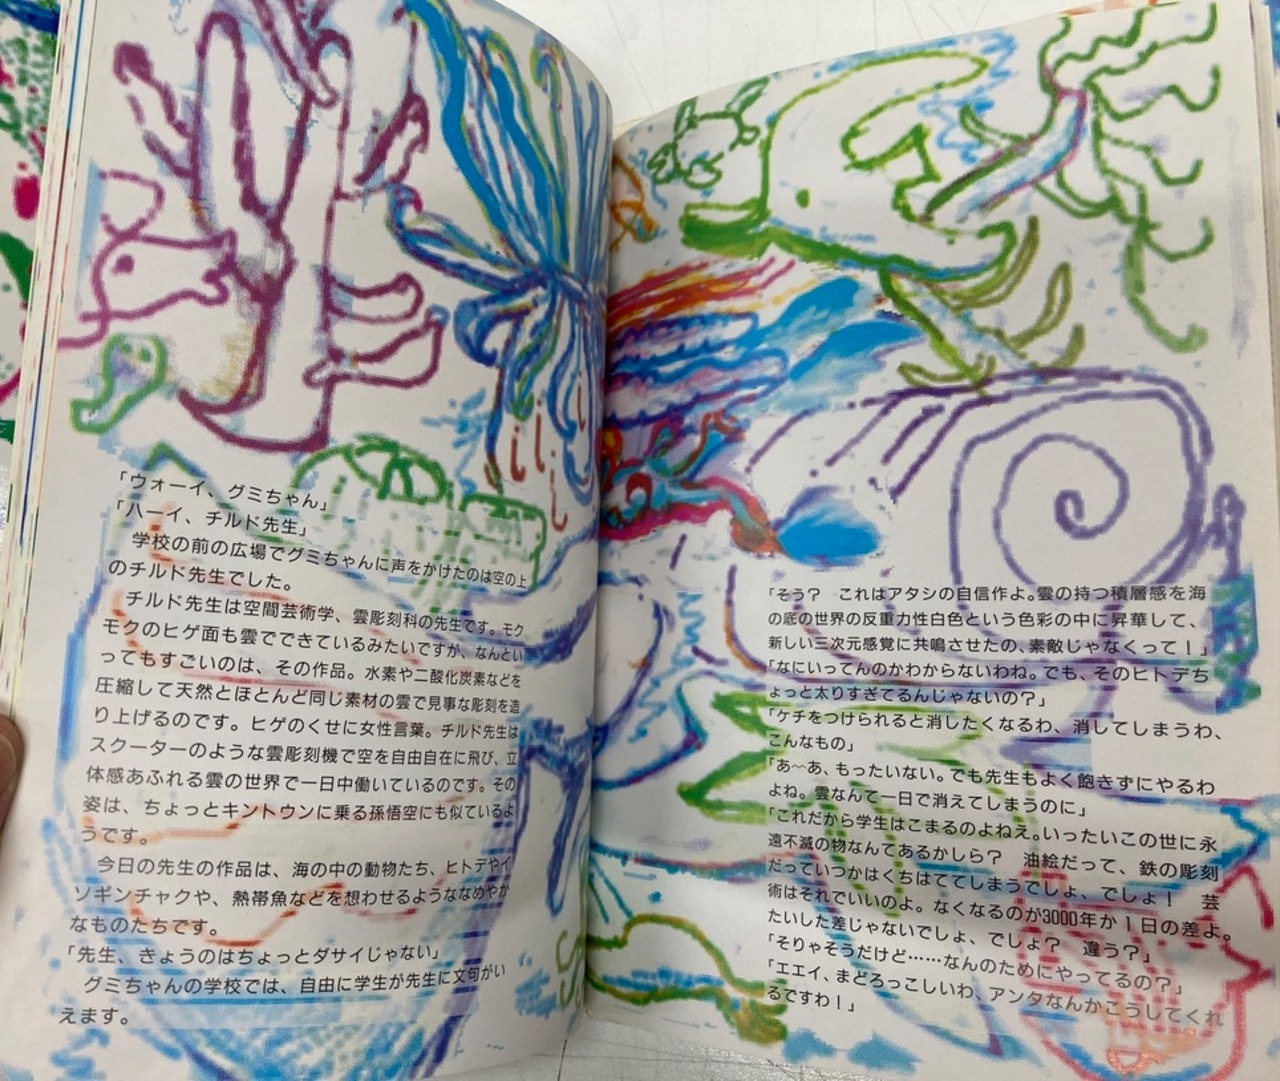 「ウォーイ、グミちゃん」
「ハーイ、チルド先生」
学校の前の広場でグミちゃんに声をかけたのは空の上
のチルド先生でした。
チルド先生は空間芸術学、雲彫刻科の先生です。モク
モクのヒゲ面も雲でできているみたいですが、なんとい
ってもすごいのは、その作品。水素や二酸化炭素などを
圧縮して天然とほとんど同じ素材の雲で見事な彫刻を造
り上げるのです。ヒゲのくせに女性言葉。チルド先生は
スクーターのような雲彫刻機で空を自由自在に飛び、立
体感あふれる雲の世界で一日中働いているのです。その
姿は、ちょっとキントウンに乗る孫悟空にも似ているよ
うです。
今日の先生の作品は、海の中の動物たち、ヒトデやイ
ソギンチャクや、熱帯魚などを想わせるようななめやか
なものたちです。
「先生、きょうのはちょっとダサイじゃない」
グミちゃんの学校では、自由に学生が先生に文句がい
えます。
「そう？　これはアタシの自信作よ。雲の持つ積層感を海
の底の世界の反重力性白色という色彩の中に昇華して、
新しい三次元感覚に共鳴させたの、素敵じゃなくって！」
「なにいってんのかわからないわね。でも、そのヒトデち
ょっと太りすぎてるんじゃないの？」
「ケチをつけられると消したくなるわ、消してしまうわ、
こんなもの」
「あ〜あ、もったいない。でも先生もよく飽きずにやるわ
よね。雲なんて一日で消えてしまうのに」
「これだから学生はこまるのよねえ。いったいこの世に永
遠不滅の物なんてあるかしら？　油絵だって、鉄の彫刻
だっていつかはくちはててしまうでしょ、でしょ！　芸
術はそれでいいのよ。なくなるのが3000年か1日の差よ。
たいした差じゃないでしょ、でしょ？　違う？」
「そりゃそうだけど……なんのためにやってるの？」
「エエイ、まどろっこしいわ、アンタなんかこうしてくれ
るですわ！」